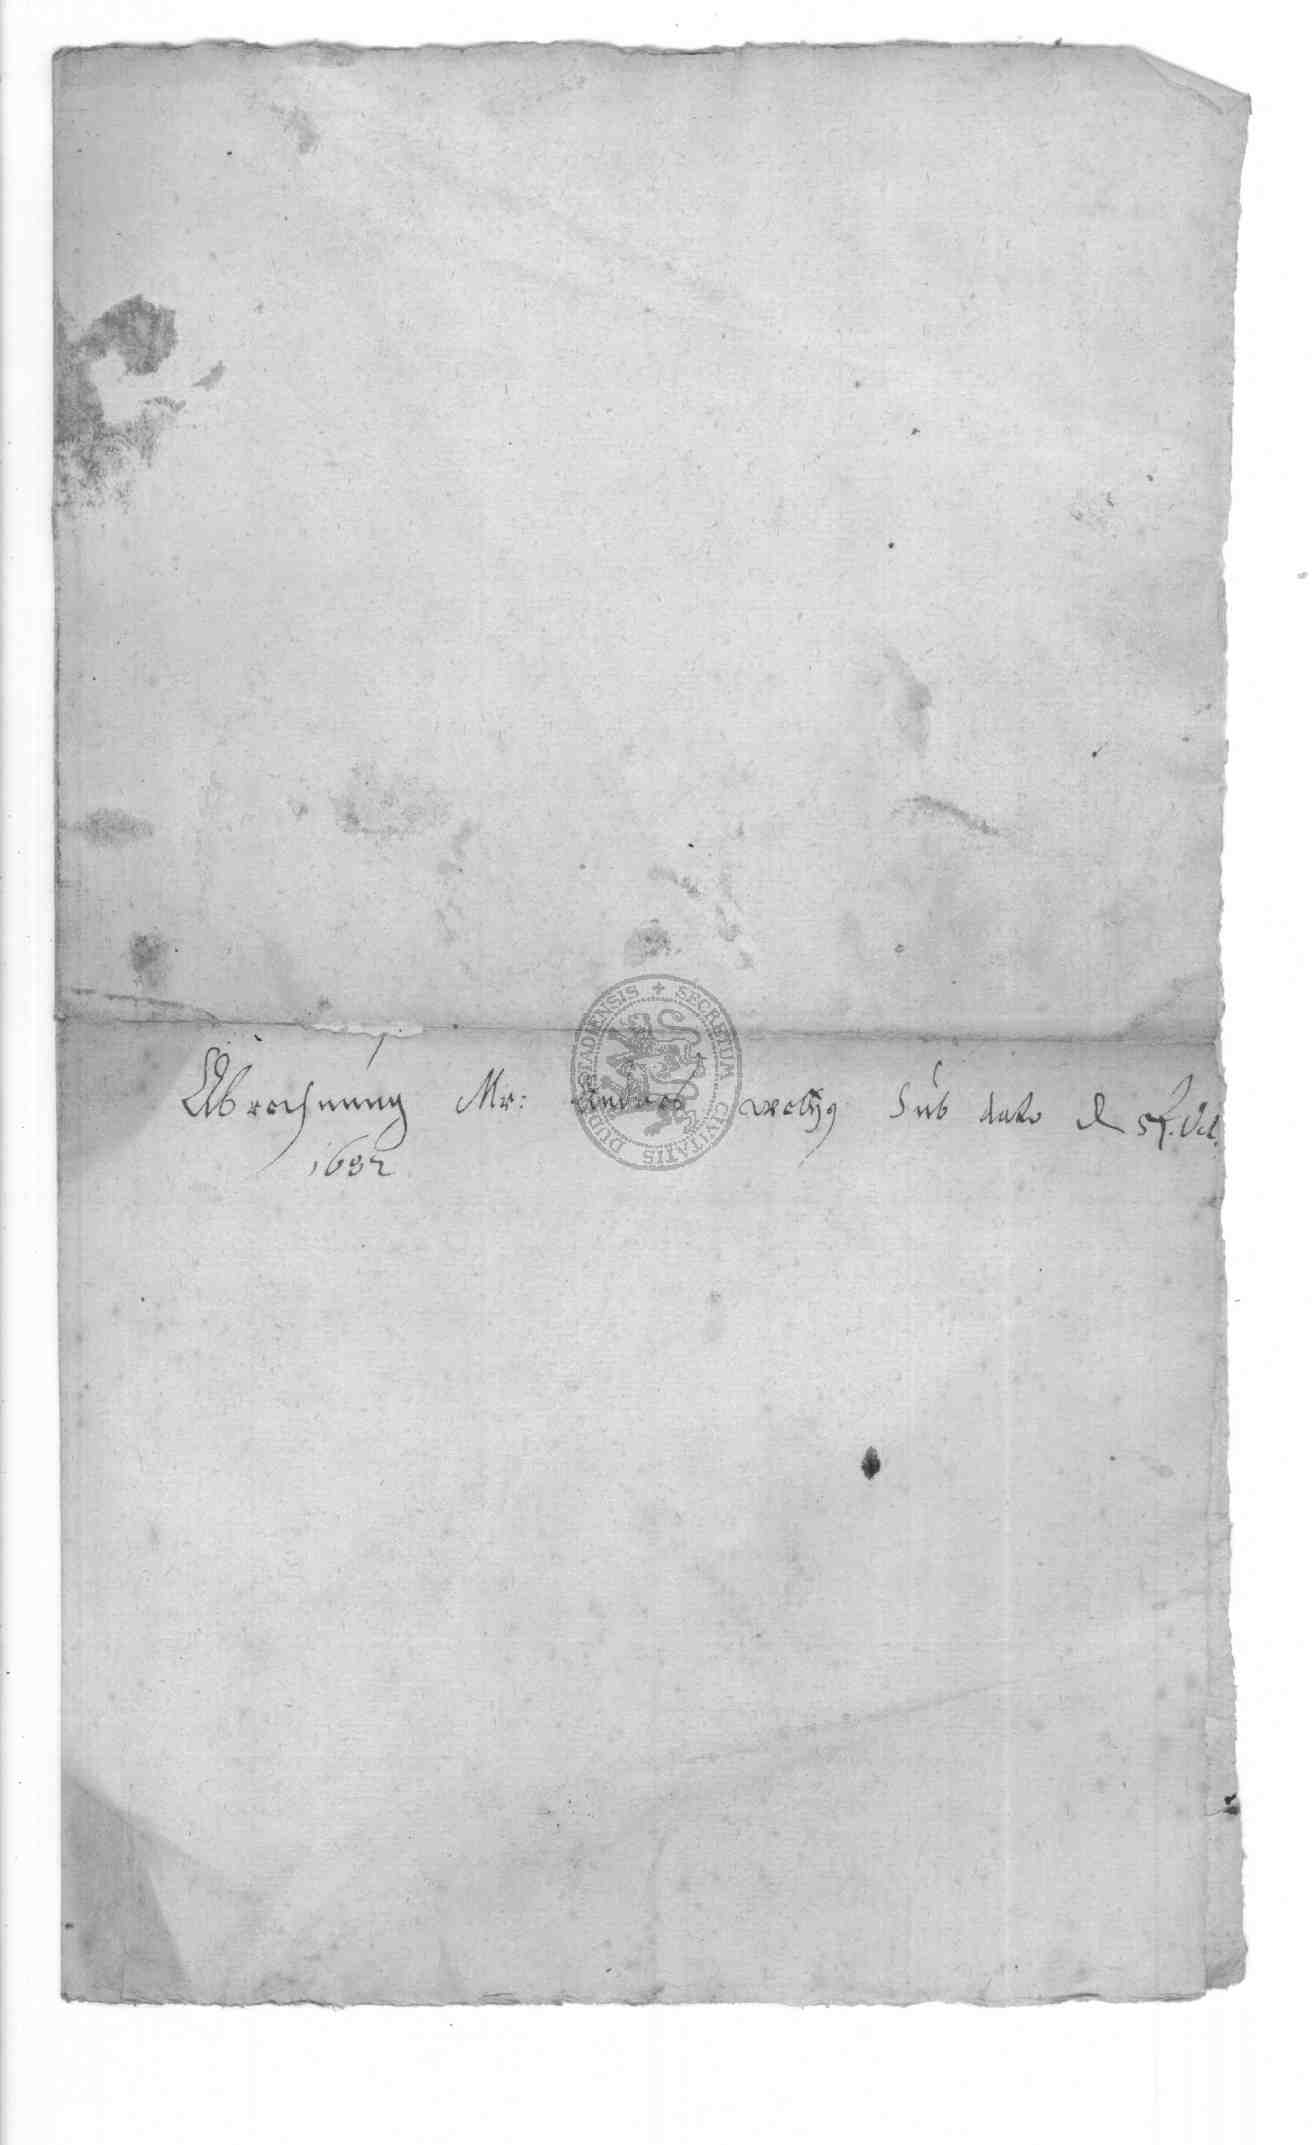 Abrechnung Mr: Andres sub dato d 5t. Oct.
1682
SECRETUM CIVITATIS DUDERSTADIENSIS